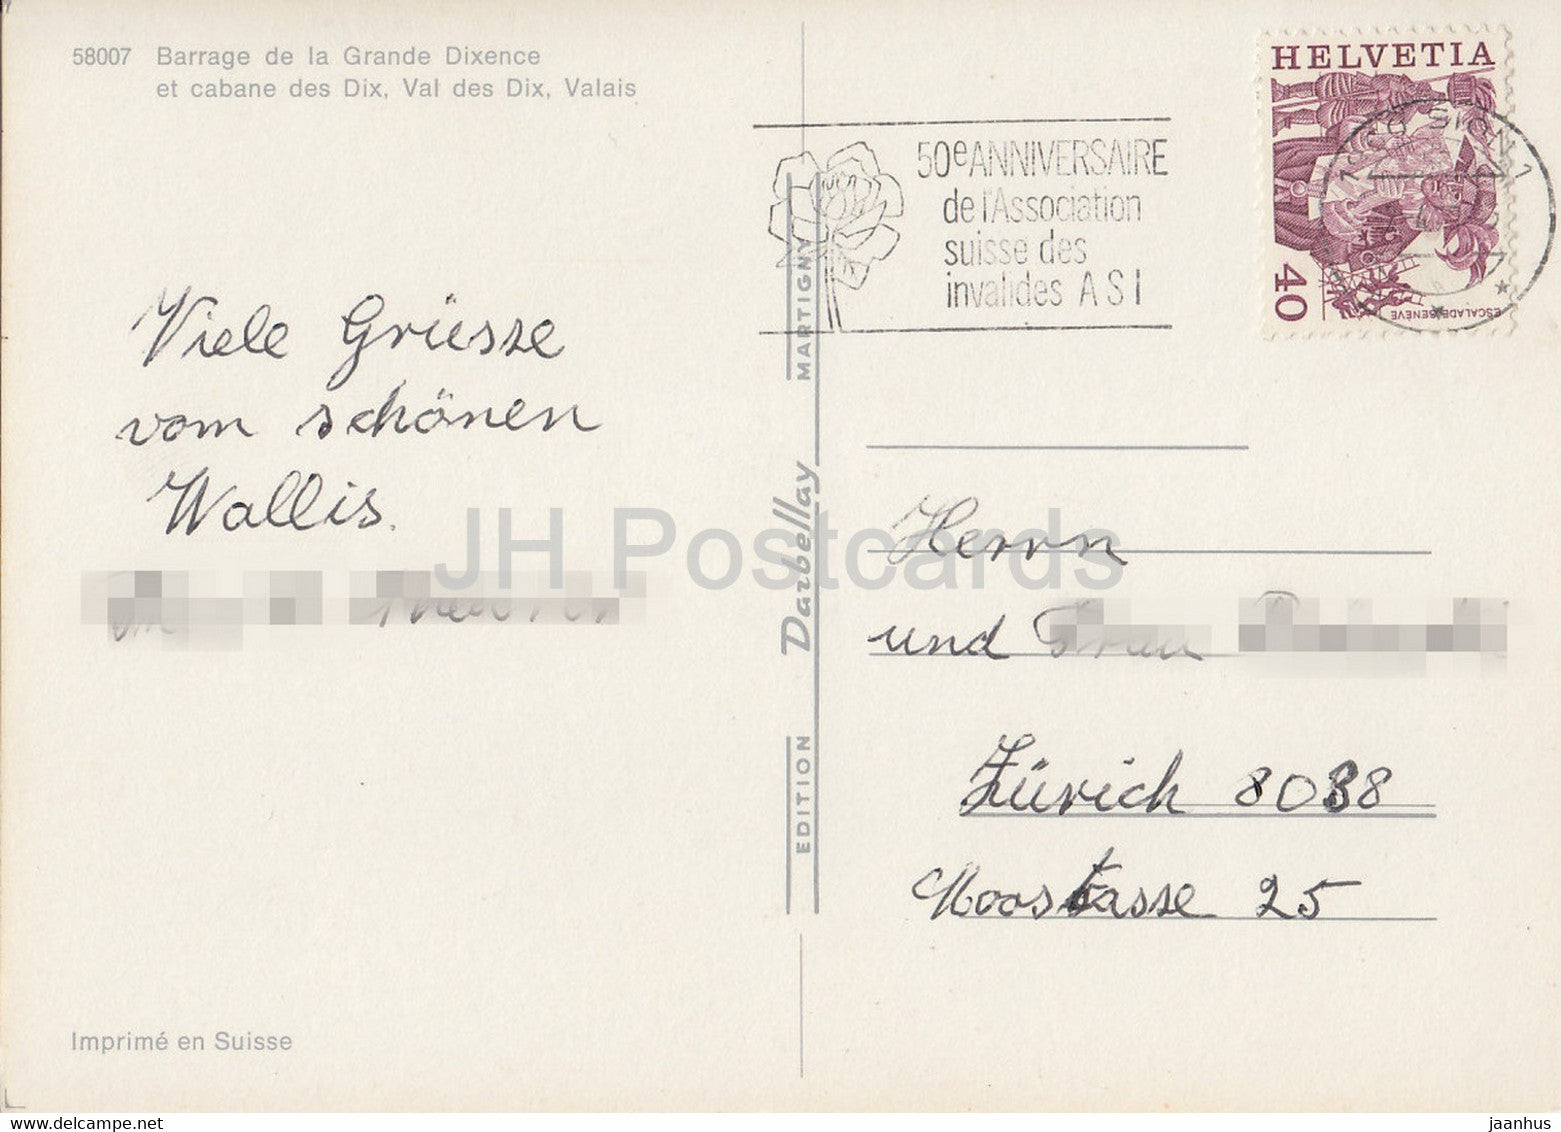 58007 Barrage de la Grande Dixence
et cabane des Dix, Val des Dix, Valais
HELVETIA
40
ESCALADE GENEVE
1950 SION 1
50e ANNIVERSAIRE
de l'Association
suisse des
invalides ASI
Viele Griesse
vom schönen
Wallis.
JH Postcards
EDITION Darbellay MARTIGNY
Herrn
und Frau
Zürich 8038
Moostasse 25
Imprimé en Suisse
jaanhus